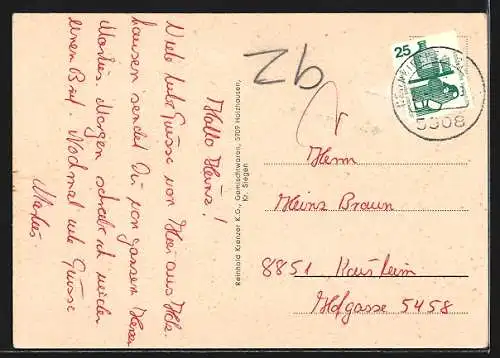 Hallo Heinz!
Viele liebe Grüsse von Hier aus Holz-
hausen sendet Dir von ganzem Herzen
Marlies. Morgen schreibe ich wieder
einen Brief. Nochmal viele Grüsse
Marlies
Reinhold Krenzer K.G., Gemischtwaren, 5909 Holzhausen,
Kr. Siegen
92
25
5908
Herrn
Heinz Braun
8851
Hofgasse 5458